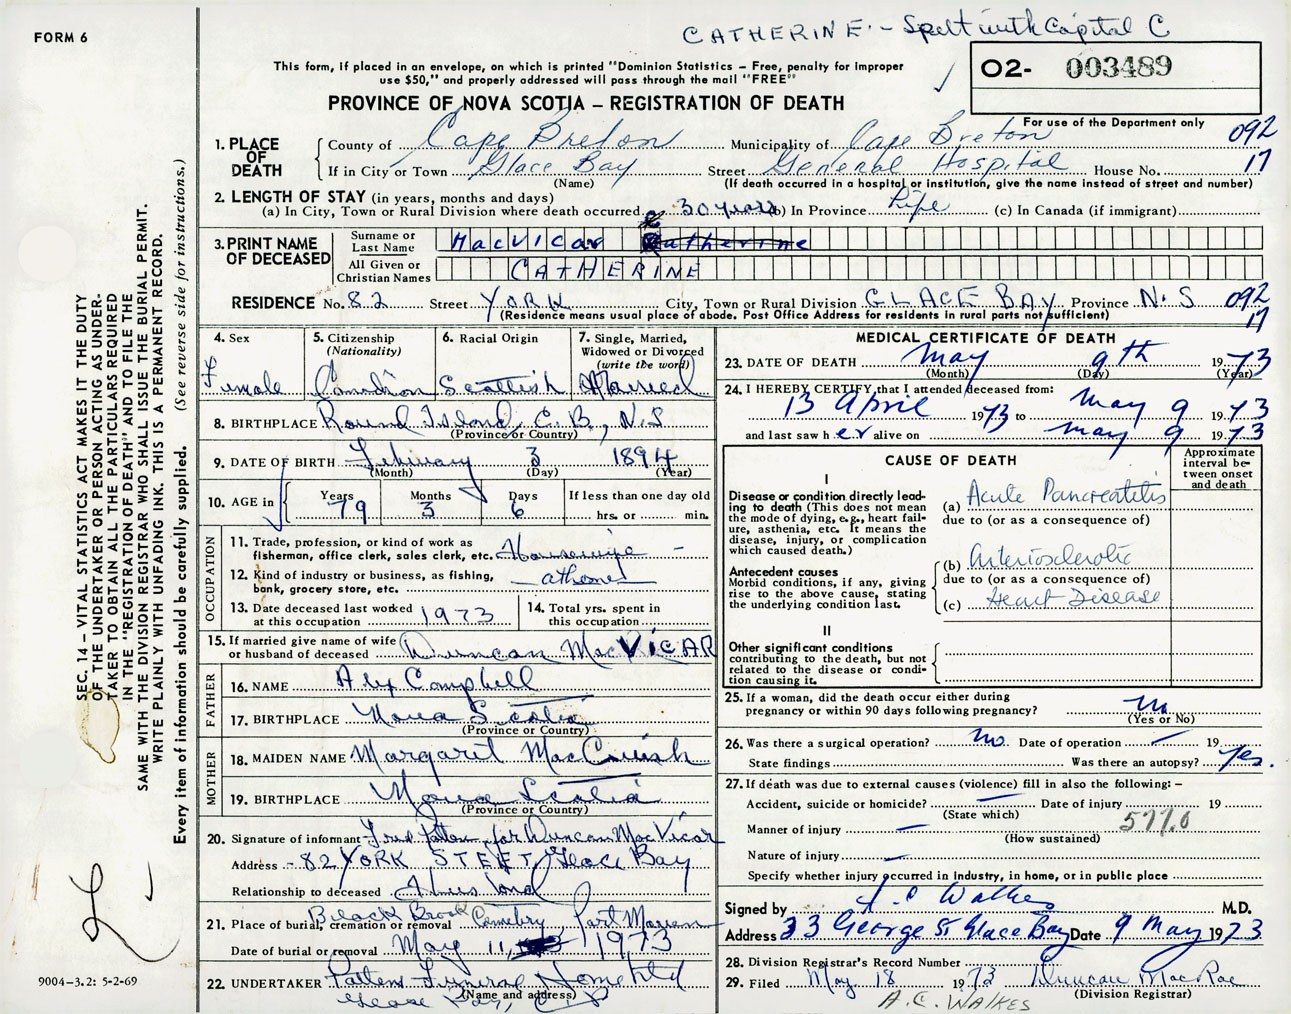 FORM 6
CATHERINE - Spelt with Capital C
This form, if placed in an envelope, on which is printed "Dominion Statistics – Free, penalty for improper
use $50," and properly addressed will pass through the mail "FREE"
O2- 003489
PROVINCE OF NOVA SCOTIA – REGISTRATION OF DEATH
For use of the Department only
1. PLACE OF DEATH
County of Cape Breton Municipality of Cape Breton 092
If in City or Town Glace Bay Street General Hospital House No. 17
(Name) (If death occurred in a hospital or institution, give the name instead of street and number)
2. LENGTH OF STAY (in years, months and days)
(a) In City, Town or Rural Division where death occurred 30 years (b) In Province Life (c) In Canada (if immigrant)
3. PRINT NAME OF DECEASED
Surname or Last Name MacVicar Catherine
All Given or Christian Names CATHERINE
RESIDENCE No. 82 Street YORK City, Town or Rural Division GLACE BAY Province N.S 092
(Residence means usual place of abode. Post Office Address for residents in rural parts not sufficient) 17
4. Sex Female
5. Citizenship (Nationality) Canadian
6. Racial Origin Scottish
7. Single, Married, Widowed or Divorced (write the word) Married
8. BIRTHPLACE Round Island, C.B., N.S
(Province or Country)
9. DATE OF BIRTH February 3 1894
(Month) (Day) (Year)
10. AGE in Years 79 Months 3 Days 6 If less than one day old hrs. or min.
OCCUPATION
11. Trade, profession, or kind of work as fisherman, office clerk, sales clerk, etc. Housewife -
12. Kind of industry or business, as fishing, bank, grocery store, etc. at home
13. Date deceased last worked at this occupation 1973
14. Total yrs. spent in this occupation
15. If married give name of wife or husband of deceased Duncan MacVICAR
FATHER
16. NAME Alex Campbell
17. BIRTHPLACE Nova Scotia
(Province or Country)
MOTHER
18. MAIDEN NAME Margaret MacCuish
19. BIRTHPLACE Nova Scotia
(Province or Country)
20. Signature of informant Fred Patten for Duncan MacVicar
Address - 82 YORK STEET, Glace Bay
Relationship to deceased Husband
21. Place of burial, cremation or removal Black Brook Cemetery Port Morien
Date of burial or removal May 11, 1973
22. UNDERTAKER Pattens Funeral Home Ltd
(Name and address) Glace Bay, C.B
MEDICAL CERTIFICATE OF DEATH
23. DATE OF DEATH May 9th 1973
(Month) (Day) (Year)
24. I HEREBY CERTIFY that I attended deceased from:
13 April 1973 to May 9 1973
and last saw her alive on May 9 1973
CAUSE OF DEATH
Approximate interval between onset and death
I
Disease or condition directly leading to death (This does not mean the mode of dying, e.g., heart failure, asthenia, etc. It means the disease, injury, or complication which caused death.)
(a) Acute Pancreatitis
due to (or as a consequence of)
Antecedent causes
Morbid conditions, if any, giving rise to the above cause, stating the underlying condition last.
(b) Arteriosclerotic
due to (or as a consequence of)
(c) Heart Disease
II
Other significant conditions contributing to the death, but not related to the disease or condition causing it.
25. If a woman, did the death occur either during pregnancy or within 90 days following pregnancy? No
(Yes or No)
26. Was there a surgical operation? No. Date of operation 19
State findings Was there an autopsy? Yes.
27. If death was due to external causes (violence) fill in also the following: –
Accident, suicide or homicide? Date of injury 19
(State which)
Manner of injury 577.0
(How sustained)
Nature of injury
Specify whether injury occurred in industry, in home, or in public place
Signed by A C Walkes M.D.
Address 33 George St Glace Bay Date 9 May 1973
28. Division Registrar's Record Number
29. Filed May 18 1973 Duncan MacRae
(Division Registrar)
A.C. WALKES
SEC. 14 – VITAL STATISTICS ACT MAKES IT THE DUTY
OF THE UNDERTAKER OR PERSON ACTING AS UNDER-
TAKER TO OBTAIN ALL THE PARTICULARS REQUIRED
IN THE "REGISTRATION OF DEATH" AND TO FILE THE
SAME WITH THE DIVISION REGISTRAR WHO SHALL ISSUE THE BURIAL PERMIT.
WRITE PLAINLY WITH UNFADING INK. THIS IS A PERMANENT RECORD.
Every item of information should be carefully supplied. (See reverse side for instructions.)
9004-3.2: 5-2-69